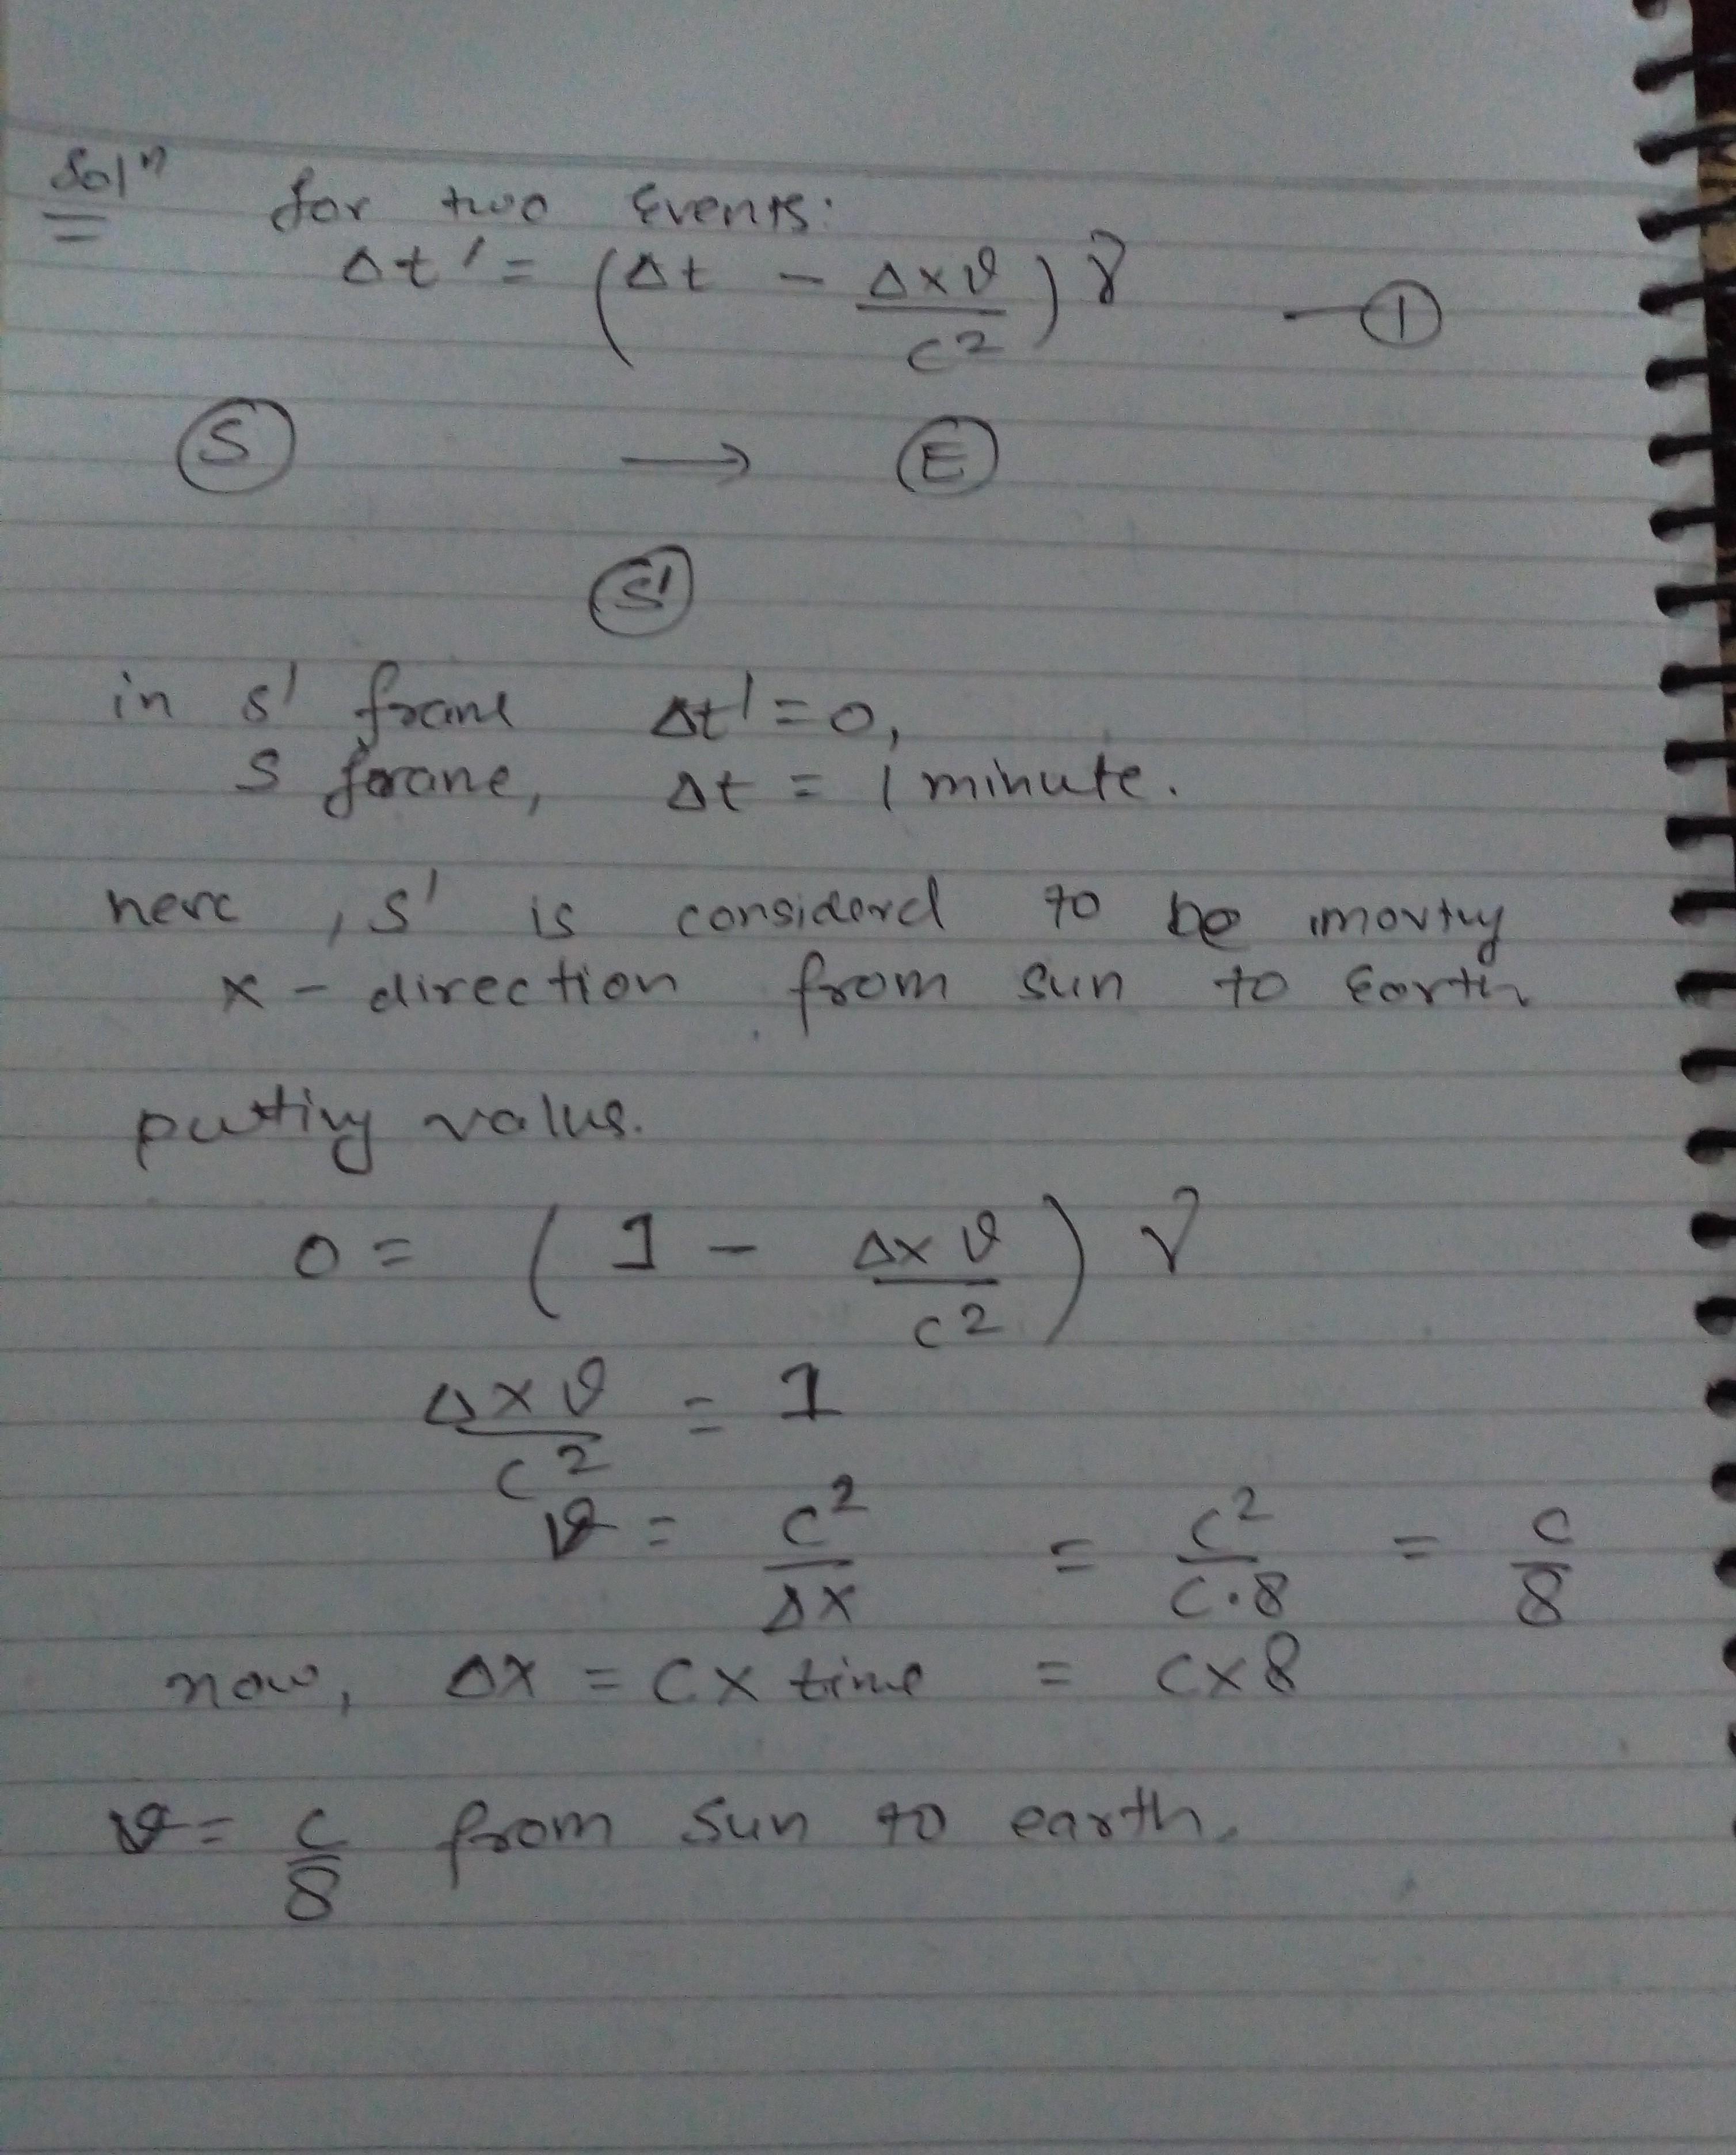 Solⁿ for two Events:
Δt' = (Δt - Δxv/c²) γ —①
Ⓢ → Ⓔ
S'
in s' frame Δt' = 0,
S frame, Δt = 1 minute.
here, s' is considered to be moving
x - direction from sun to Earth
putting value.
0 = (1 - Δxv/c²) γ
Δxv/c² = 1
v = c²/Δx = c²/c.8 = c/8
now, Δx = c x time = c x 8
v = c/8 from sun to earth.